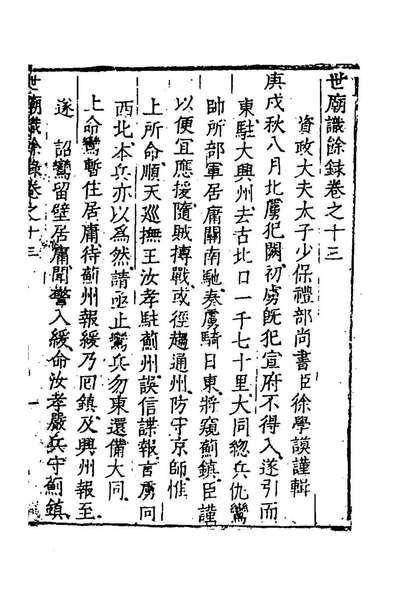 世廟識餘録卷之十三
資政大夫太子少保禮部尚書臣徐學謨謹輯
庚戌秋八月北虜犯闕初虜旣犯宣府不得入遂引而
東駐大興州去古北口一千七十里大同緫兵仇鸞
帥所部軍居庸關南馳奏虜騎日東將窺薊鎮臣謹
以便宜應援隨賊搏戰或徑趨通州防守京師惟
上所命順天廵撫王汝孝駐薊州誤信諜報言虜向
西北本兵亦以爲然請亟止鸞兵勿東還備大同
上命鸞暫住居庸待薊州報緩乃囘鎮及興州報至
遂 詔鸞留壁居庸聞警入緩命汝孝嚴兵守薊鎮
世廟識餘録卷之十三